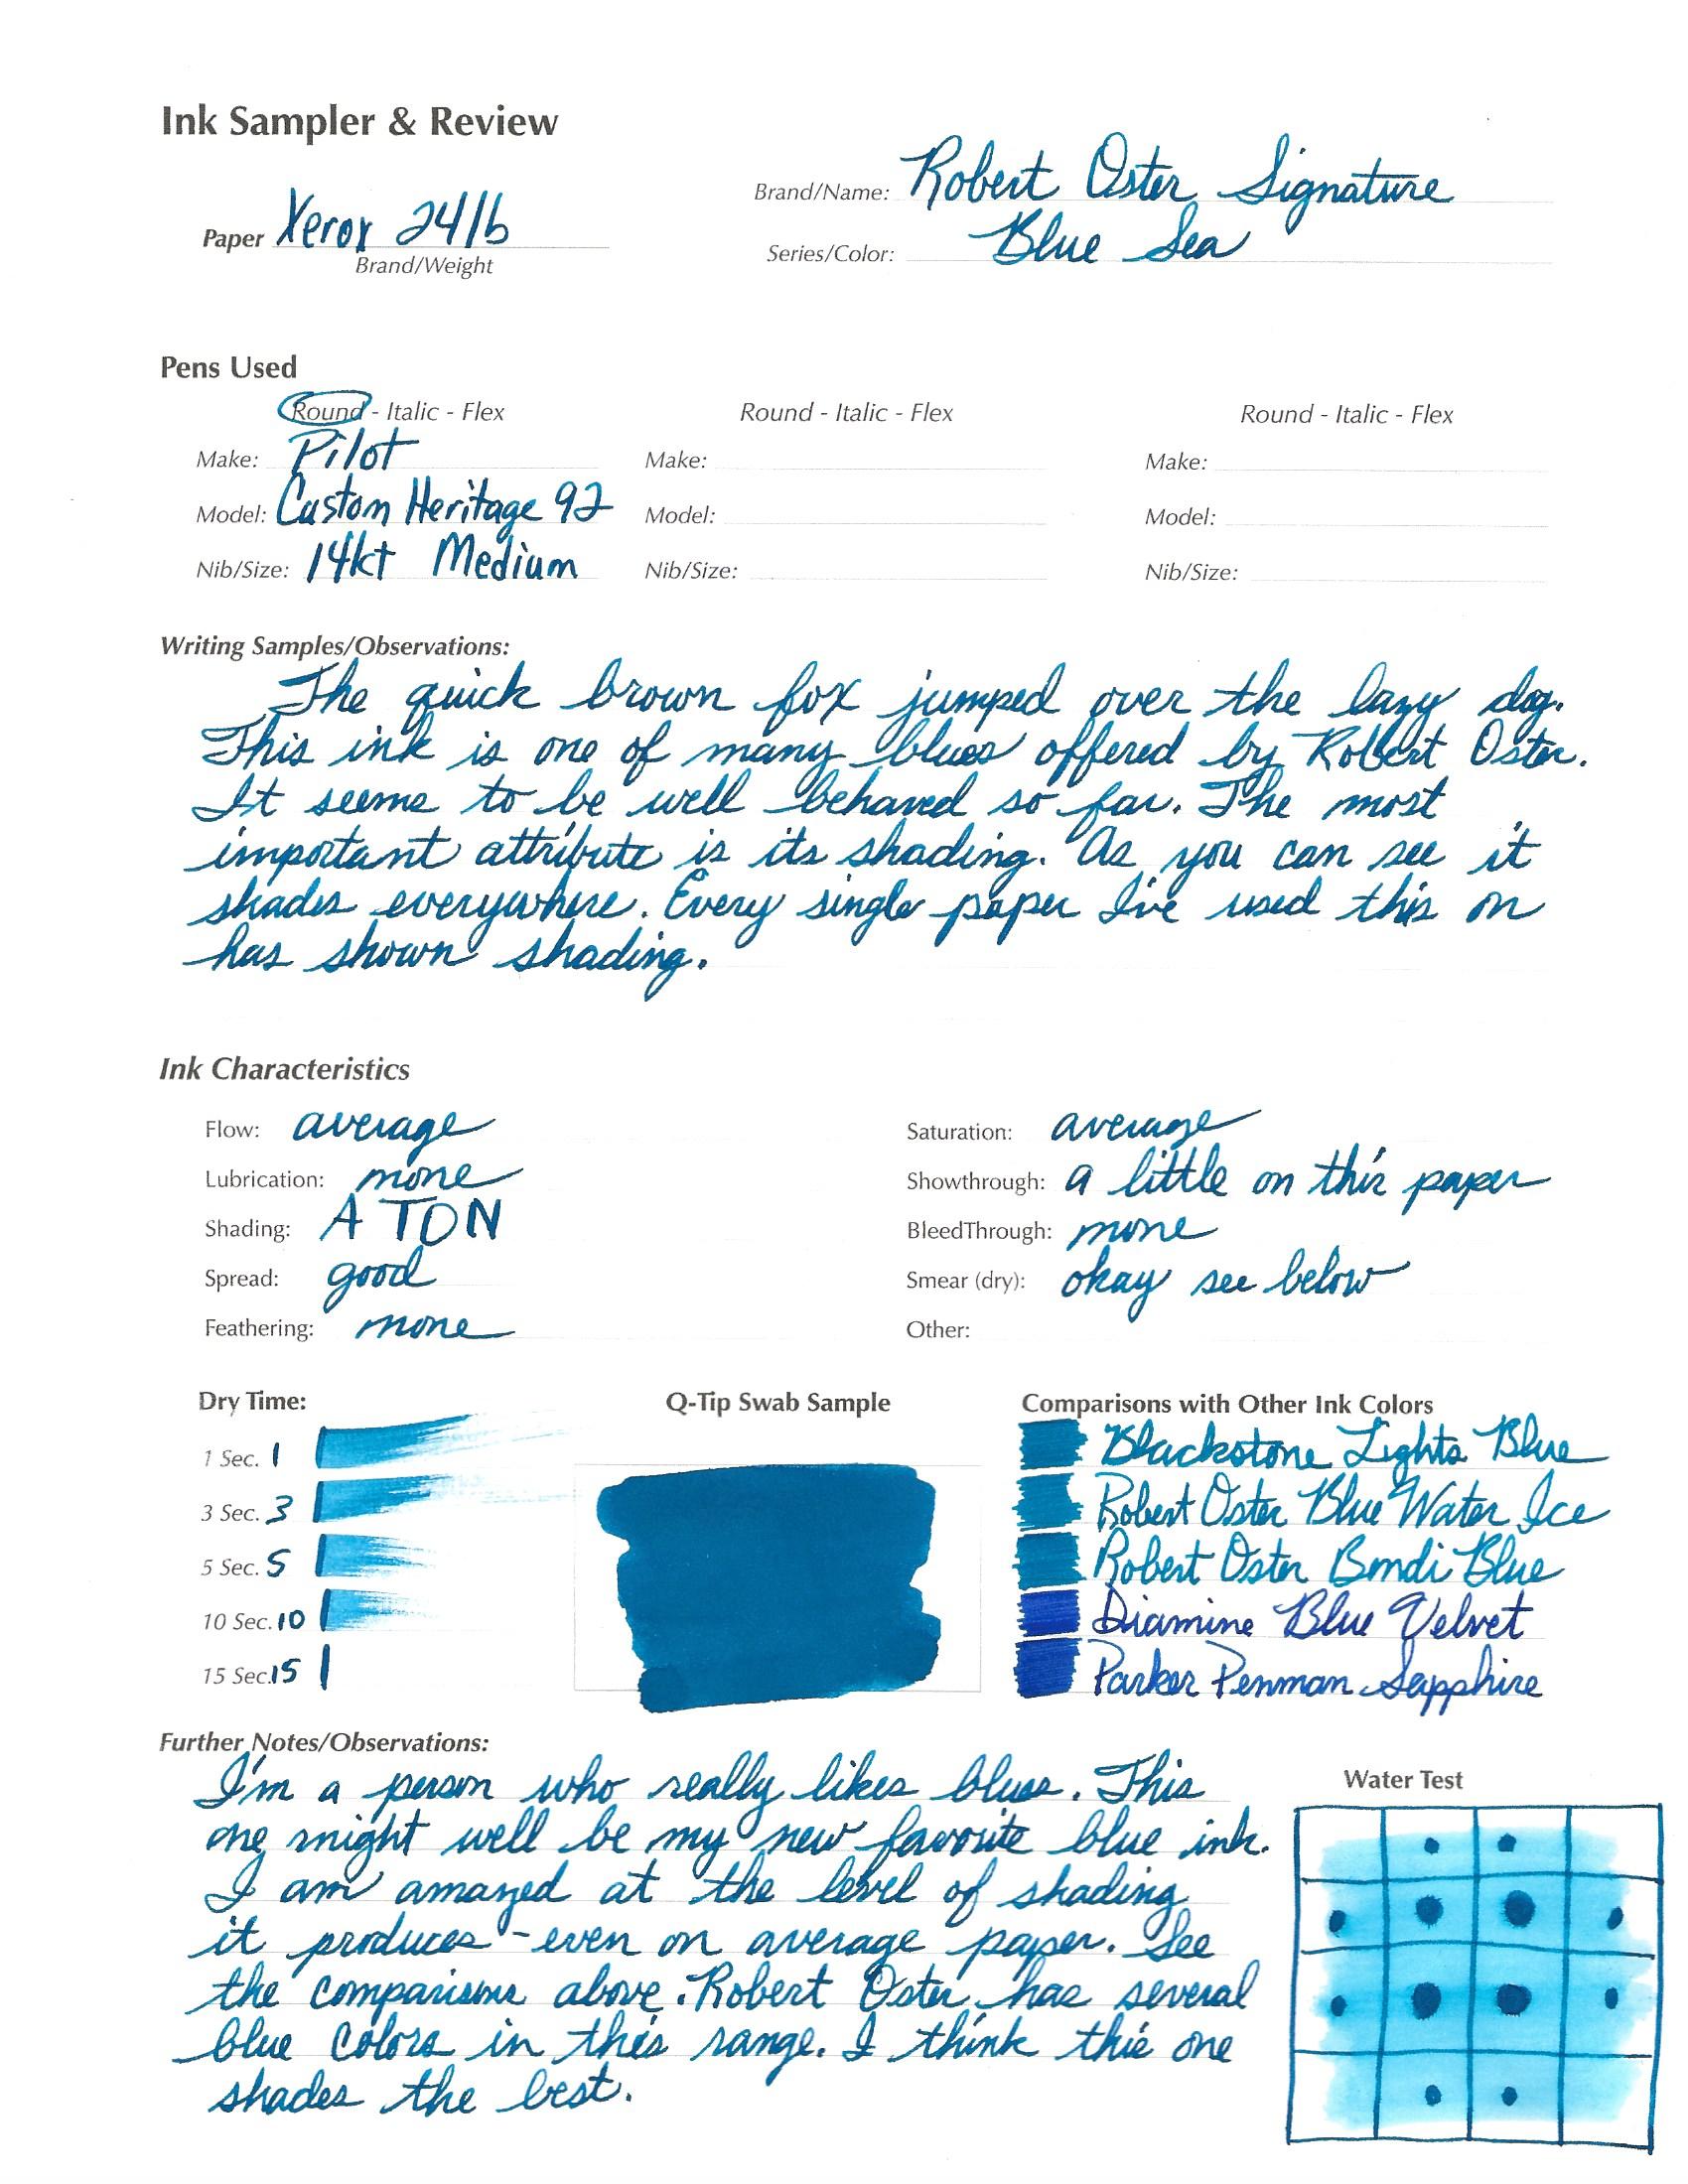 Ink Sampler & Review
Brand/Name: Robert Oster Signature
Paper Xerox 24lb
Brand/Weight
Series/Color: Blue Sea
Pens Used
Round - Italic - Flex
Make: Pilot
Model: Custom Heritage 92
Nib/Size: 14kt Medium
Round - Italic - Flex
Make:
Model:
Nib/Size:
Round - Italic - Flex
Make:
Model:
Nib/Size:
Writing Samples/Observations:
The quick brown fox jumped over the lazy dog.
This ink is one of many blues offered by Robert Oster.
It seems to be well behaved so far. The most
important attribute is its shading. As you can see it
shades everywhere. Every single paper I've used this on
has shown shading.
Ink Characteristics
Flow: average
Lubrication: none
Shading: A TON
Spread: good
Feathering: none
Saturation: average
Showthrough: a little on this paper
BleedThrough: none
Smear (dry): okay see below
Other:
Dry Time:
1 Sec. 1
3 Sec. 3
5 Sec. 5
10 Sec. 10
15 Sec. 15
Q-Tip Swab Sample
Comparisons with Other Ink Colors
Blackstone Lights Blue
Robert Oster Blue Water Ice
Robert Oster Bondi Blue
Diamine Blue Velvet
Parker Penman Sapphire
Further Notes/Observations:
I'm a person who really likes blues. This
one might well be my new favorite blue ink.
I am amazed at the level of shading
it produces - even on average paper. See
the comparisons above. Robert Oster has several
blue colors in this range. I think this one
shades the best.
Water Test